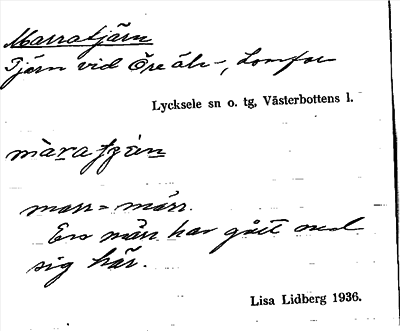 Marratjärn
Tjärn vid Öre älv, Lomfors
Lycksele sn o. tg, Västerbottens l.
màratjæ̀n
marr = märr.
En märr har gått ned
sig här.
Lisa Lidberg 1936.